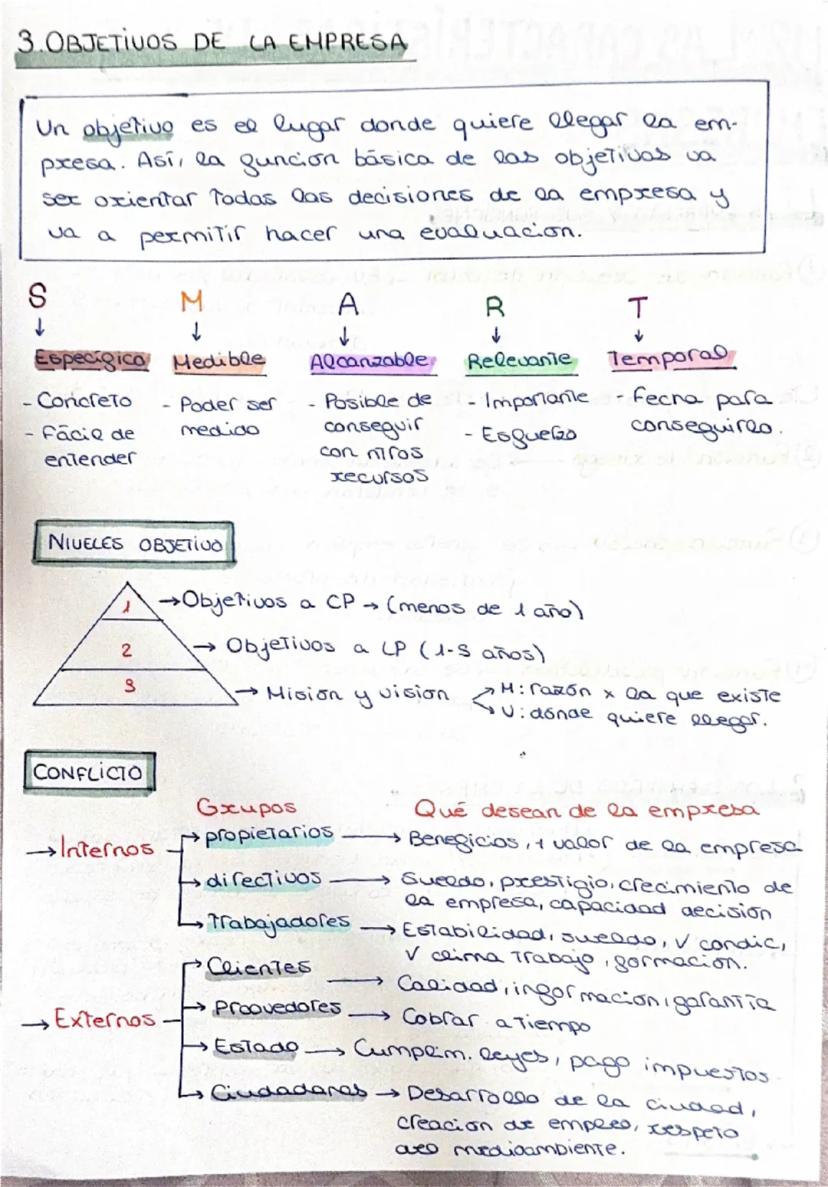 3. OBJETIVOS DE LA EMPRESA
Un objetivo es el lugar donde quiere llegar la em-
presa. Así, la función básica de los objetivos va
ser orientar todas las decisiones de la empresa y
va a permitir hacer una evaluación.
S M A R T
↓ ↓ ↓ ↓ ↓
Específico Medible Alcanzable Relevante Temporal
- Concreto - Poder ser - Posible de - Importante - Fecha para
- Fácil de medido conseguir - Esfuerzo conseguirlo.
entender con ntros
recursos
NIVELES OBJETIVO
1 → Objetivos a CP → (menos de 1 año)
2 → Objetivos a LP (1-3 años)
3 → Misión y visión M: razón x la que existe
V: dónde quiere llegar.
CONFLICTO
Grupos Qué desean de la empresa
→ Internos → propietarios → Beneficios, + valor de la empresa
→ directivos → Sueldo, prestigio, crecimiento de
la empresa, capacidad decisión
→ Trabajadores → Estabilidad, sueldo, V condic,
V clima trabajo, formación.
→ Clientes → Calidad, información, garantía
→ Externos → Proovedores → Cobrar a tiempo
→ Estado → Cumplim. leyes, pago impuestos
→ Ciudadanos → Desarrollo de la ciudad,
creación de empleo, respeto
del medioambiente.